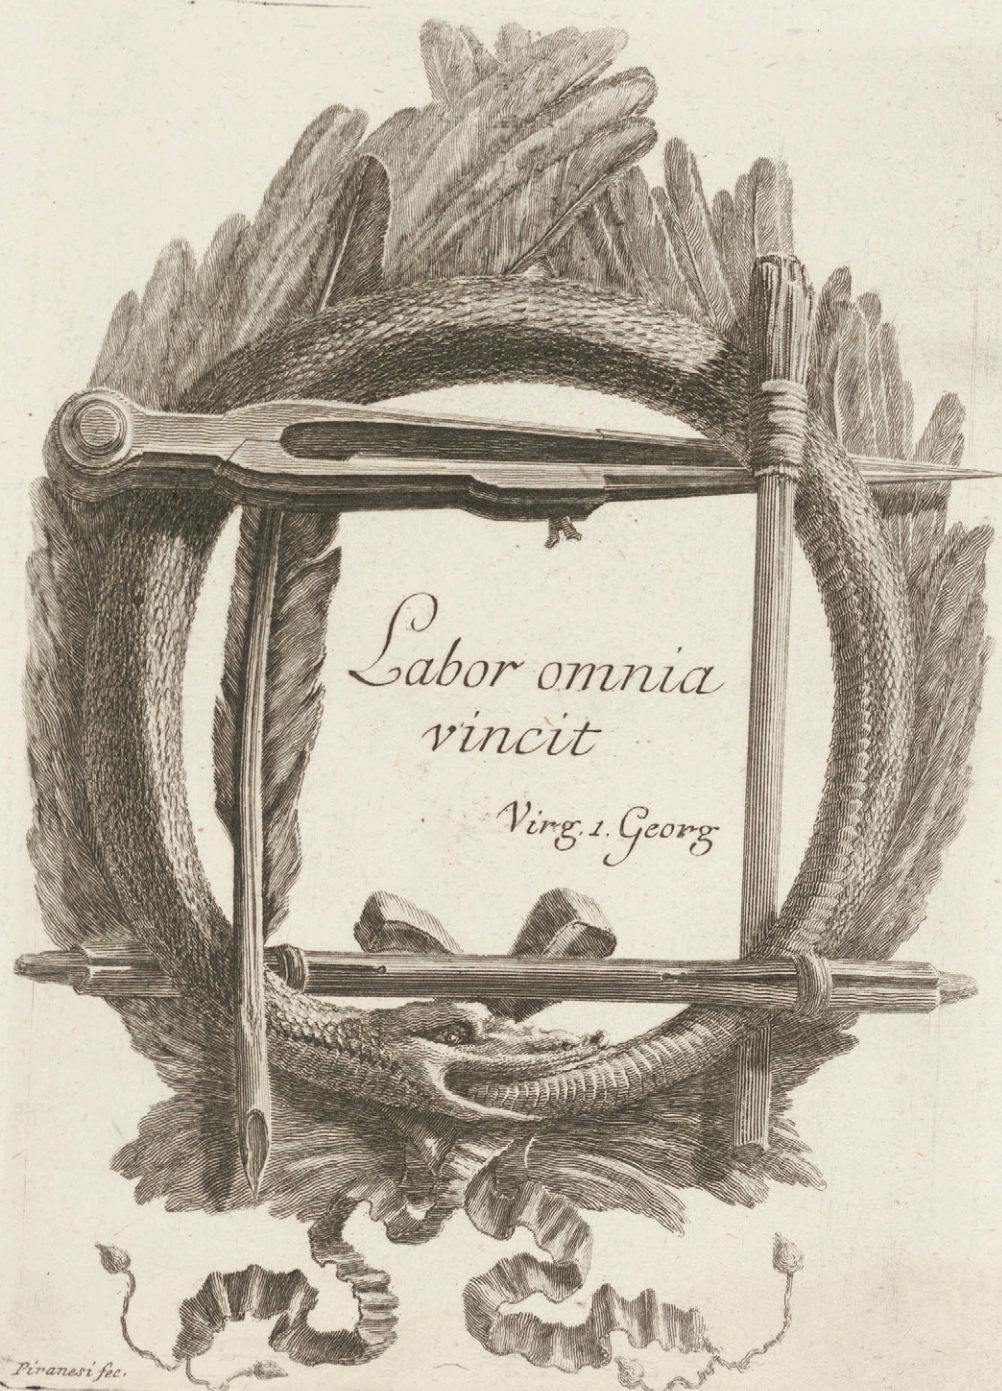 Labor omnia
vincit
Virg. 1. Georg
Piranesi fec.